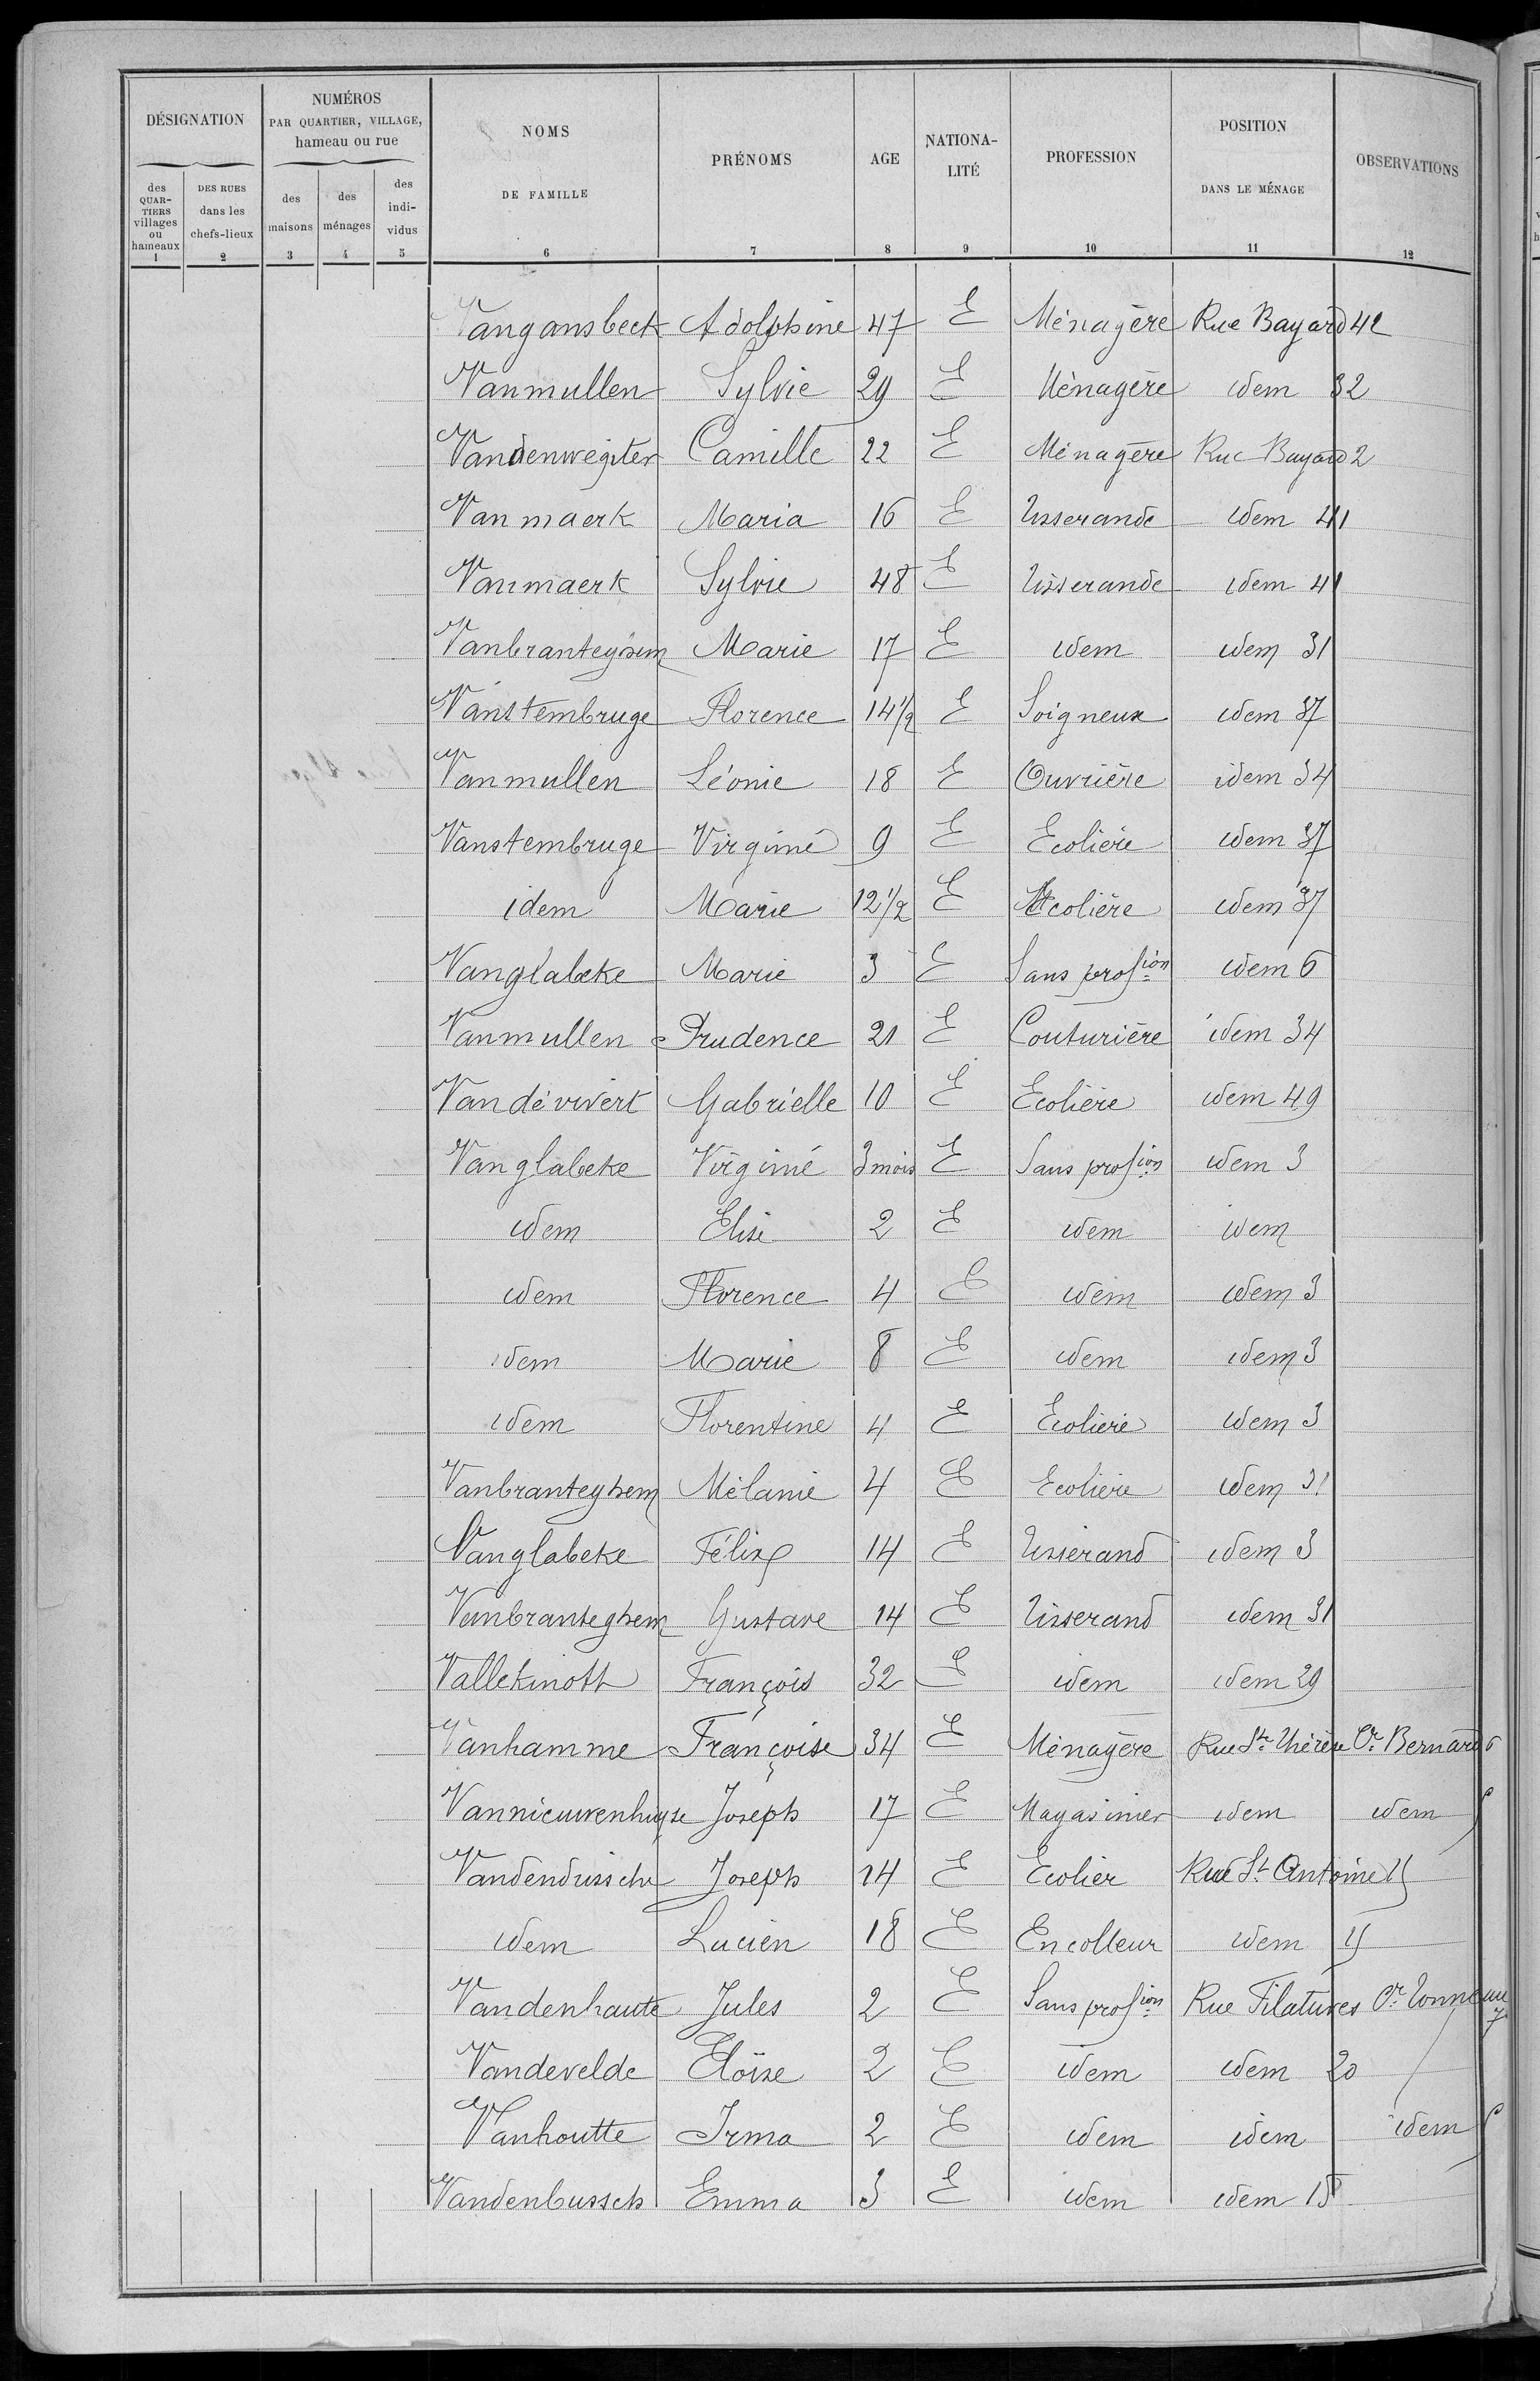 DÉSIGNATION
NUMÉROS
PAR QUARTIER, VILLAGE,
hameau ou rue
NOMS
DE FAMILLE
PRÉNOMS
AGE
NATIONA-
LITÉ
PROFESSION
POSITION
DANS LE MÉNAGE
OBSERVATIONS
des
QUAR-
TIERS
villages
ou
hameaux
DES RUES
dans les
chefs-lieux
des
maisons
des
ménages
des
indi-
vidus
1 2 3 4 5 6 7 8 9 10 11 12
Vangansbeck Adolphine 47 E Ménagère Rue Bayard 42
Vanmullen Sylvie 29 E Ménagère idem 32
Vandenwegiter Camille 22 E Ménagère Rue Bayard 2
Vanmaerk Maria 16 E Tisserande idem 41
Vanmaerk Sylvie 48 E Tisserande idem 41
Vanbranteghem Marie 17 E idem idem 31
Vanstembruge Florence 14 1/2 E Soigneux idem 37
Vanmullen Léonie 18 E Ouvrière idem 34
Vanstembruge Virginie 9 E Ecolière idem 37
idem Marie 12 1/2 E Ecolière idem 37
Vanglabeke Marie 3 E Sans profion idem 6
Vanmullen Prudence 21 E Couturière idem 34
Vandévivert Gabrielle 10 E Ecolière idem 49
Vanglabeke Virginie 3 mois E Sans profion idem 3
idem Elise 2 E idem idem
idem Florence 4 E idem idem 3
idem Marie 8 E idem idem 3
idem Florentine 4 E Ecolière idem 3
Vanbranteghem Mélanie 4 E Ecolière idem 31
Vanglabeke Félix 14 E Tisserand idem 3
Vanbranteghem Gustave 14 E Tisserand idem 31
Vallekinoth François 32 E idem idem 29
Vanhamme Françoise 34 E Ménagère Rue Ste Thérèse Cr Bernard 6
Vannieuwenhuyse Joseph 17 E Magasinier idem idem
Vandendrissche Joseph 14 E Ecolier Rue St Antoine 15
idem Lucien 18 E Encolleur idem 15
Vandenhaute Jules 2 E Sans profion Rue Filatures Cr Tonneau 7
Vandevelde Eloïse 2 E idem idem 20
Vanhoutte Irma 2 E idem idem idem
Vandenbussch Emma 3 E idem idem 15